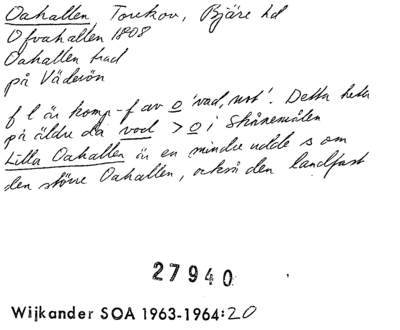 Oahallen, Torekov, Bjäre hd
Ofvahallen 1808
Oahallen trad
på Väderön
f l är komp-f av o 'vad, not'. Detta heter
på äldre da vod > o i Skånemålen
Lilla Oahallen är en mindre udde som
den större Oahallen, också den landfast
27940
Wijkander SOA 1963-1964:20